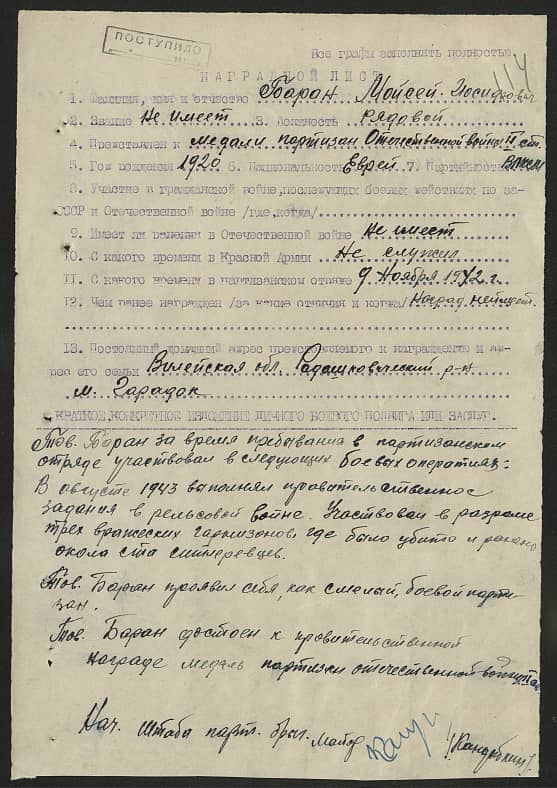 ПОСТУПИЛО
Все графы заполнять полностью.
114
НАГРАДНОЙ ЛИСТ
1. Фамилия, имя и отчество Баран Мойсей-Иосифович
2. Звание Не имеет 3. Должность рядовой
4. Представлен к медали партизан Отечественной войны II ст.
5. Год рождения 1920 6. Национальность Еврей 7. Партийность ВЛКСМ
8. Участие в гражданской войне, последующих боевых действиях по за-
СССР и Отечественной войне /где, когда/
9. Имеет ли ранения в Отечественной войне Не имеет
10. С какого времени в Красной Армии Не служил
11. С какого времени в партизанском отряде 9 Ноября 1942 г.
12. Чем ранее награжден /за какие отличия и когда/ Наград не имеет.
13. Постоянный домашний адрес представляемого к награждению и ад-
рес его семьи Вилейская обл. Радошковический р-н
м. Гарадок
КРАТКОЕ, КОНКРЕТНОЕ ИЗЛОЖЕНИЕ ЛИЧНОГО БОЕВОГО ПОДВИГА ИЛИ ЗАСЛУГ.
Тов. Баран за время пребывания в партизанском
отряде участвовал в следующих боевых операциях:
В августе 1943 выполнял правительственное
задания в рельсовой войне. Участвовал в разгроме
трех вражеских гарнизонов, где было убито и ранено
около ста
Тов. Баран проявил себя, как смелый, боевой парти-
зан.
Тов. Баран достоен к правительственной
награде медаль партизан отечественной войны
Нач. Штаба парт. бриг. майор